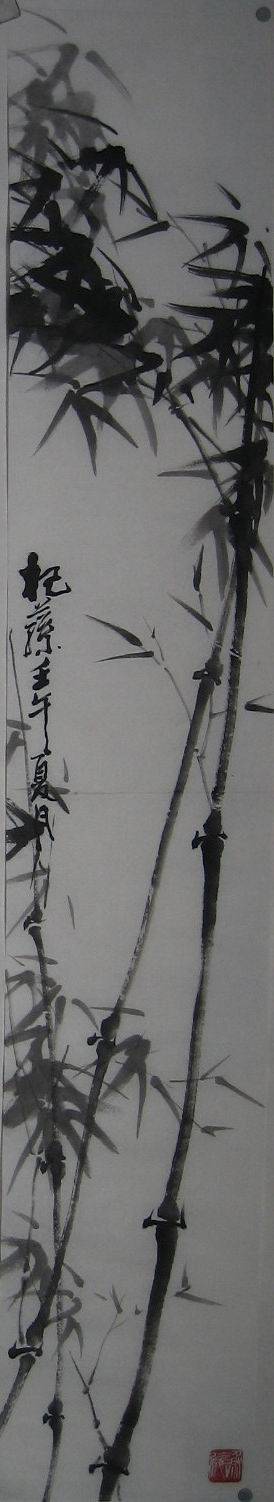 杞蓀壬午夏月